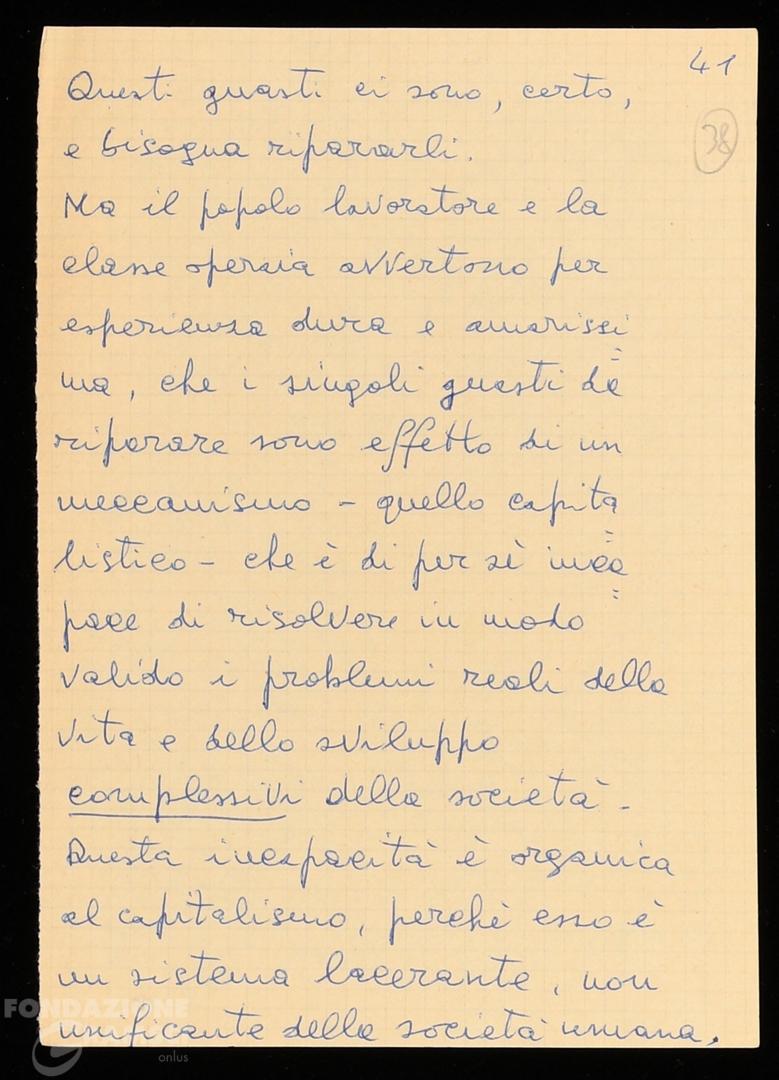 41
38
Questi guasti ci sono, certo,
e bisogna ripararli.
Ma il popolo lavoratore e la
classe operaia avvertono per
esperienza dura e amarissi
ma, che i singoli guasti da
riparare sono effetto di un
meccanismo - quello capita
listico - che è di per sè inca
pace di risolvere in modo
valido i problemi reali della
vita e dello sviluppo
complessivi della società.
Questa incapacità è organica
al capitalismo, perchè esso è
un sistema lacerante, non
unificante della società umana.
FONDAZIONE
onlus